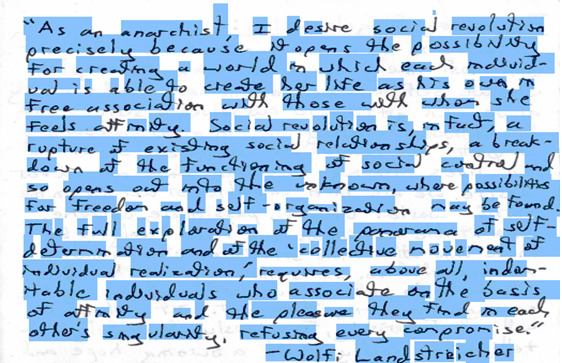 "As an anarchist, I desire social revolution
precisely because it opens the possibility
for creating a world in which each individ-
ual is able to create her life as his own in
free association with those with whom she
feels affinity. Social revolution is, in fact, a
rupture of existing social relationships, a break-
down of the functioning of social control and
so opens out into the unknown, where possibilities
for freedom and self-organization may be found.
The full exploration of the panorama of self-
determination and of the 'collective movement of
individual realization,' requires, above all, indom-
itable individuals who associate on the basis
of affinity and the pleasure they find in each
other's singularity, refusing every compromise."
-Wolfi Landstreicher